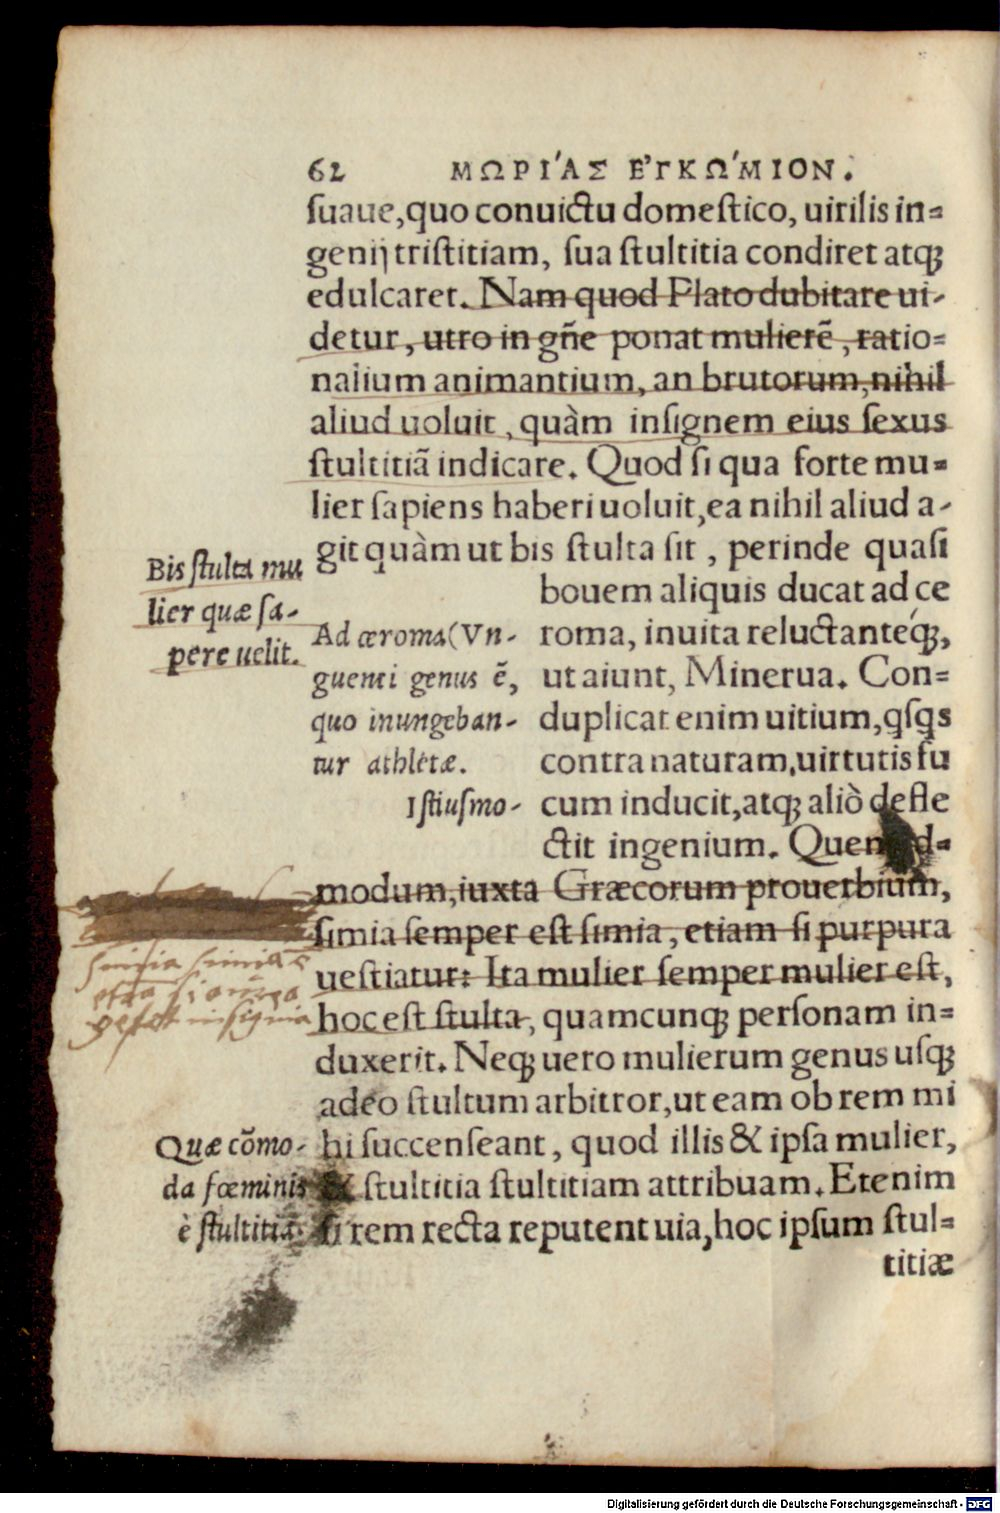 62 ΜΩΡΙ´ΑΣ ΕʼΓΚΩ´ΜΙΟΝ.
ſuaue,quo conuictu domeſtico, uirilis in=
genij triſtitiam, ſua ſtultitia condiret atq;
edulcaret. Nam quod Plato dubitare ui-
detur, utro in gñe ponat mulierẽ, ratio=
nalium animantium, an brutorum, nihil
aliud uoluit, quàm inſignem eius ſexus
ſtultitiã indicare. Quod ſi qua forte mu=
lier ſapiens haberi uoluit,ea nihil aliud a-
git quàm ut bis ſtulta ſit, perinde quaſi
Bis ſtulta mu
lier quæ ſa-
pere uelit.
bouem aliquis ducat ad ce
roma, inuita reluctanteq́;,
ut aiunt, Minerua. Con=
duplicat enim uitium,qſqs
contra naturam,uirtutis fu
cum inducit,atq; aliò defle
ctit ingenium. Quemad=
Ad œroma(Vn-
guenti genus ẽ,
quo inungeban-
tur athletæ.
Iſtiuſmo-
modum,iuxta Græcorum prouerbium,
ſimia ſemper eſt ſimia, etiam ſi purpura
ueſtiatur: Ita mulier ſemper mulier eſt,
hoc eſt ſtulta, quamcunq; perſonam in=
duxerit. Neq; uero mulierum genus uſq;
adeo ſtultum arbitror,ut eam ob rem mi
hi ſuccenſeant, quod illis & ipſa mulier,
& ſtultitia ſtultitiam attribuam. Etenim
ſi rem recta reputent uia,hoc ipſum ſtul=
titiæ
simia simia
etia si aurea
gestet insignia
Quæ cõmo-
da fœminis
è ſtultitia.
Digitalisierung gefördert durch die Deutsche Forschungsgemeinschaft - DFG